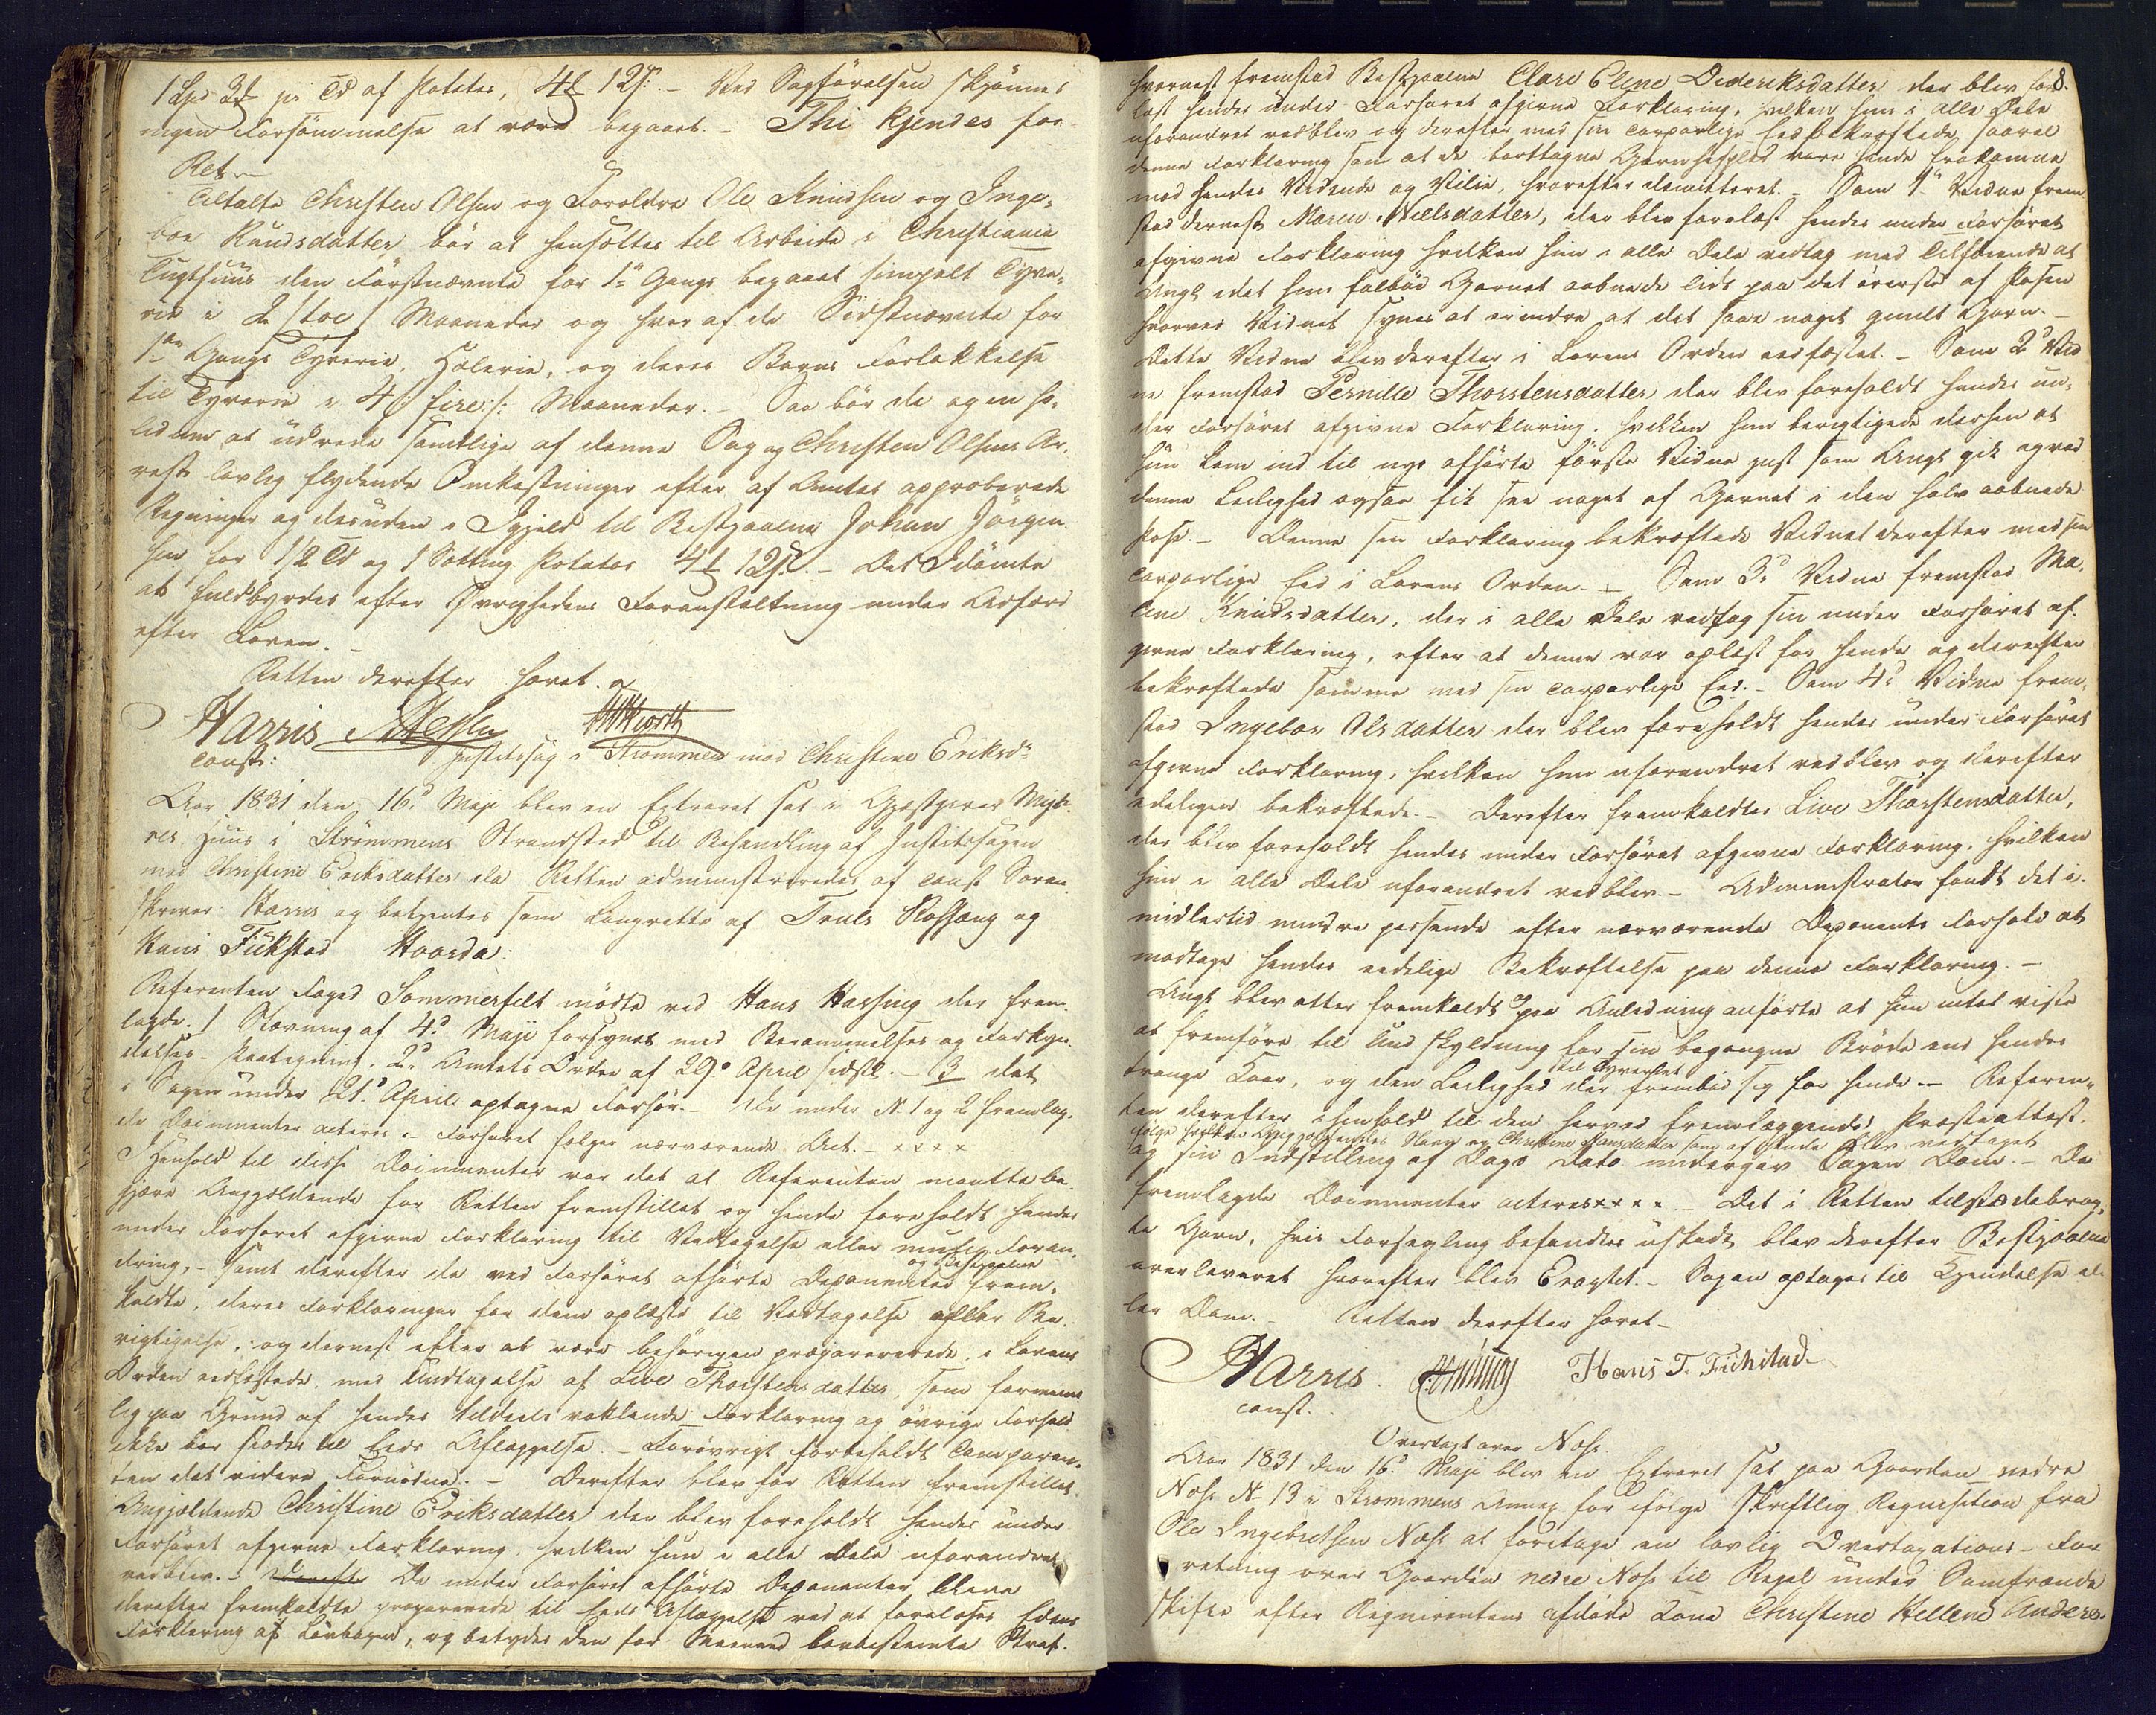 1 Spd 3 ₰ pr Td af Potetes, 4 ₰ 12 s. – Ved Sagførelsen skjønnes
ingen Forsømmelse at være begaaet. – Thi kjendes for
Ret
Tiltalte Christen Olsen og Foreldre Ole Knudsen og Inge-
bor Knudsdatter bør at hensættes til Arbeide i Christiania
Tugthuus den Førstnævnte for 1ste Gangs begaaet simpelt Tyve-
rie i 2 /: toe :/ Maaneder og hver af de Sidstnævnte for
1ste Gangs Tyverie, Hælerie, og deres Barns Forlokkelse
til Tyverie i 4 /: fire :/ Maaneder. – Saa bør de og in so-
lidum at udrede samtlige af denne Sag og Christen Olsens Ar-
rest lovlig flydende Omkostninger efter af Amtet approberede
Regninger og desuden i Igjeld til Bestjaalne Johan Jørgen-
sen for 1/2 Td og 1 Sætting Potetes 4 ₰ 12 s. – Det Idømte
at fuldbyrdes efter Øvrighedens Foranstaltning under Adfærd
efter Loven. –
Retten derefter hævet.
Harris
const:
Justitssag i Strømmen mod Christine Eriksdr
Aar 1831 den 16d Maji blev en Extraret sat i Gjæstgiver
Huus i Strømmens Strandsted til Behandling af Justitssagen
mod Christine Eriksdatter da Retten administreredes af const Soren-
skriver Harris og betjentes som Laugrette af Truls Rossang og
Hans Fuhstad Haarda:
Referenten Foged Sommerfelt mødte ved Hans Hassing der frem-
lagde. 1 Stævning af 4d Maji forsynet med Berammelses og Forkyn-
delses-Paategning. 2d Amtets Ordre af 29d April sidstl. – 3 det
i Sagen under 21d April optagne Forhør. – De under N 1 og 2 fremlag-
de Documenter acteres i Forhøret følger nærværende Act. – × × × ×
I Henhold til disse Documenter var det at Referenten maatte be-
gjære Angjældende for Retten fremstillet og hende foreholdt hendes
under Forhøret afgivne Forklaring til Vedtagelse eller mulig Foran-
dring, – samt derefter de ved Forhøret afhørte Deponenter og Bestjaalne frem-
kaldte, deres Forklaringer for dem oplæste til Vedtagelse eller Be-
rigtigelse, og dernæst efter at være behørigen præparerede, i Lovens
Orden eedfæstede, med Undtagelse af Live Thorstensdatter, som formeent-
lig paa Grund af hendes tildeels vaklende Forklaring og øvrige Forhold
ikke bør stedes til Eeds Aflæggelse. – Forøvrigt forbeholdt Comparen-
ten det videre Fornødne. – Derefter blev for Retten fremstillet
Angjældende Christine Eriksdatter der blev foreholdt hendes under
Forhøret afgivne Forklaring, hvilken hun i alle Dele uforandret
vedblev. – De under Forhøret afhørte Deponenter bleve
derefter fremkaldte præparerede til Eeds Aflæggelse ved at forelæses Edens
Forklaring af Lovbogen, og betydes den for Meeneed lovbestemte Straf.
8.
hvornæst fremstod Bestjaalne Clare Eline Dideriksdatter der blev fore-
læst hendes under Forhøret afgivne Forklaring, hvilken hun i alle Dele
uforandret vedblev og derefter med sin corporlige Eed bekræftede, saavel
denne Forklaring som at de borttagne Garnhespler vare hende frakomne
mod hendes Vidende og Villie, hvorefter demitteret. – Som 1te Vidne frem-
stod dernæst Maren Nielsdatter, der blev forelæst hendes under Forhøret
afgivne Forklaring hvilken hun i alle Dele vedtog med Tilføiende at
Angl. idet hun falbød Garnet aabnede lidt paa det øverste af Posen
hvorved Vidnet synes at erindre at det saae noget guult Garn. –
Dette Vidne blev derefter i Lovens Orden eedfæstet. – Som 2d Vid-
ne fremstod Pernille Thorstensdatter der blev foreholdt hendes un-
der Forhøret afgivne Forklaring, hvilken hun berigtigede derhen at
hun kom ind til nys afhørte første Vidne just som Angl. gik og ved
denne Leilighed ogsaa fik see noget af Garnet i den halv aabnede
Pose. – Denne sin Forklaring bekræftede Vidnet derefter med sin
corporlige Eed i Lovens Orden. – Som 3d Vidne fremstod Ma-
lene Knudsdatter, der i alle Dele vedtog sin under Forhøret af-
givne Forklaring, efter at denne var oplæst for hende og derefter
bekræftede samme med sin corporlige Eed. – Som 4d Vidne frem-
stod Ingebor Olsdatter der blev foreholdt hendes under Forhøret
afgivne Forklaring, hvilken hun uforandret vedblev og derefter
edeligen bekræftede. – Derefter fremkaldtes Live Thorstensdatter,
der blev foreholdt hendes under Forhøret afgivne Forklaring, hvilken
hun i alle Dele uforandret vedblev. – Administrator fandt det i-
midlertid mindre passende efter nærværende Deponents Forhold at
modtage hendes eedelige Bekræftelse paa denne Forklaring. –
Angl. blev atter fremkaldt og paa Anledning anførte at hun intet viste
at fremføre til Undskyldning for sin begangne Brøde end hendes
trange Kaar, og den Leilighed til Tyveriet der frembød sig for hende. – Referen-
ten derefter i Henhold til den herved fremlæggende Præsteattest,
ifølge hvilken Angjældendes Navn er Christine Hansdatter som af hende blev vedtaget
og sin Indstilling af Dags Dato undergav Sagen Dom. – De
fremlagde Documenter acteres × × × × – Det i Retten tilstædebrag-
te Garn, hvis Forsegling befandtes uskadt blev derefter Bestjaalne
overleveret hvorefter blev Eragtet. – Sagen optages til Kjendelse el-
ler Dom. – Retten derefter hævet –
Harris
const.
Hans T. Fuhstad
Overtaxt over Næss
Aar 1831 den 16d Maji blev en Extraret sat paa Gaarden nedre
Næss N 13 i Strømmens Annex for ifølge skriftlig Reqvisition fra
Ole Ingebretsen Næss at foretage en lovlig Overtaxations-For-
retning over Gaarden nedre Næss til Regel under Samfrænde
Skifte efter Reqvirentens afdøde Kone Christine Hellene Anders-